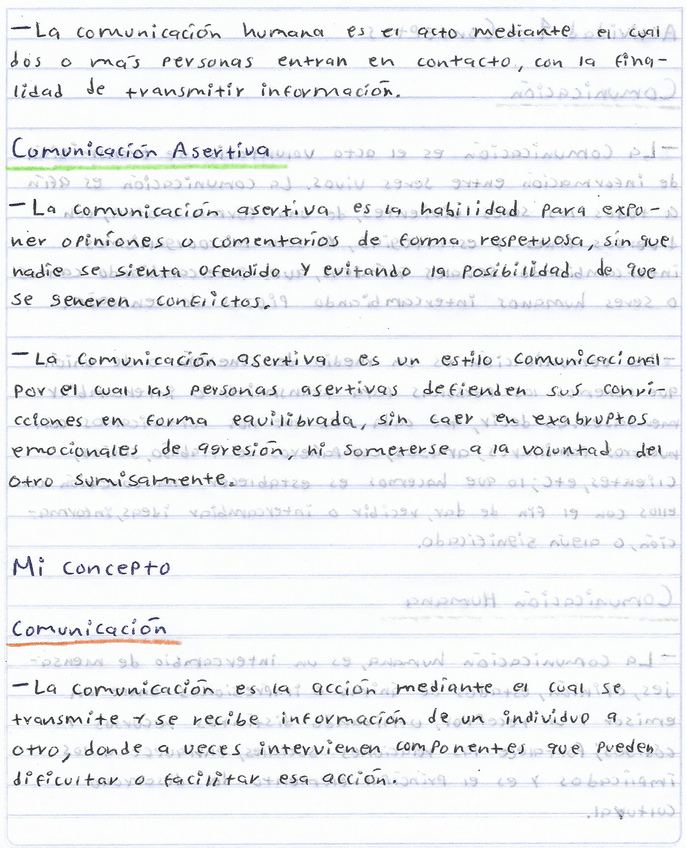 —La comunicación humana es el acto mediante el cual
dos o más personas entran en contacto, con la fina-
lidad de transmitir información.
Comunicación Asertiva
—La comunicación asertiva es la habilidad para expo-
ner opiniones o comentarios de forma respetuosa, sin que
nadie se sienta ofendido y evitando la posibilidad de que
se generen conflictos.
—La comunicación asertiva es un estilo comunicacional
por el cual las personas asertivas defienden sus convi-
cciones en forma equilibrada, sin caer en exabruptos
emocionales de agresión, ni someterse a la voluntad del
otro sumisamente.
Mi concepto
Comunicación
—La comunicación es la acción mediante el cual se
transmite y se recibe información de un individuo a
otro, donde a veces intervienen componentes que pueden
dificultar o facilitar esa acción.